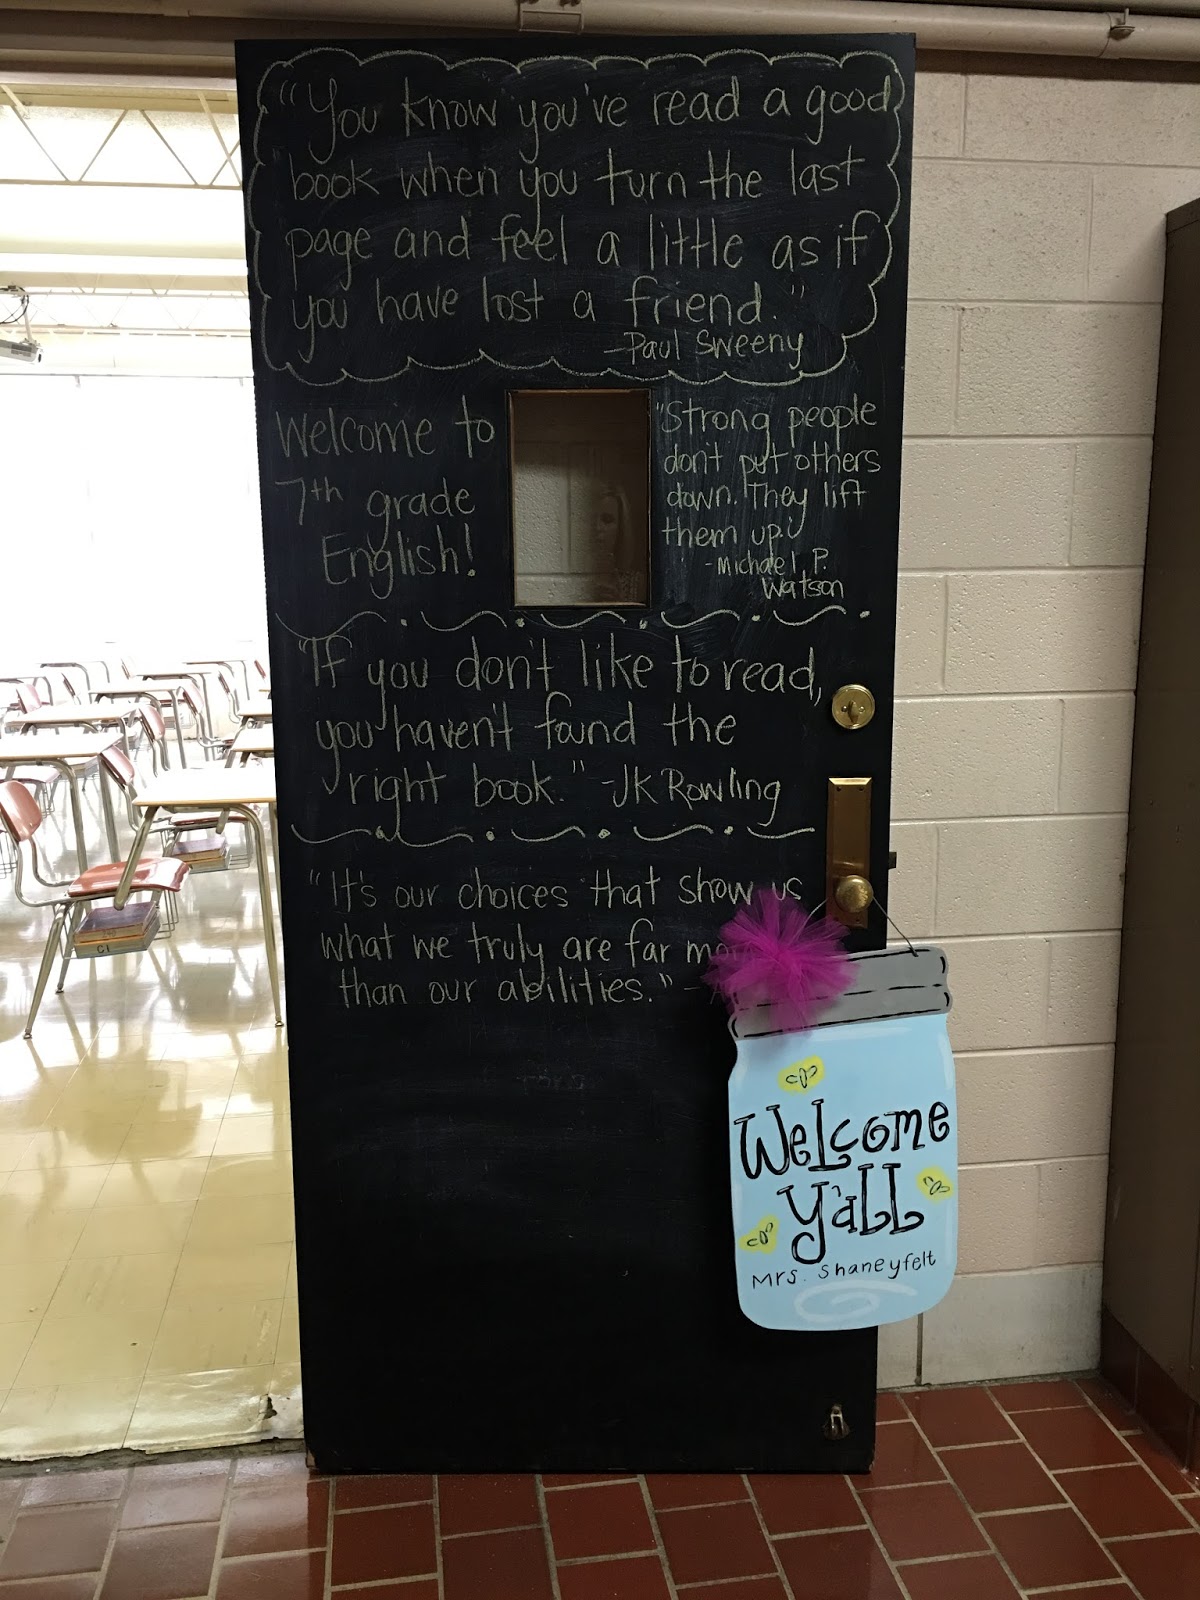 "You know you've read a good
book when you turn the last
page and feel a little as if
you have lost a friend."
-Paul Sweeny
Welcome to
7th grade
English!
"Strong people
don't put others
down. They lift
them up."
-Michael P.
Watson
"If you don't like to read,
you haven't found the
right book." -JK Rowling
"It's our choices that show us
what we truly are far
than our abilities." -
Welcome
Y'all
Mrs. Shaneyfelt
C1